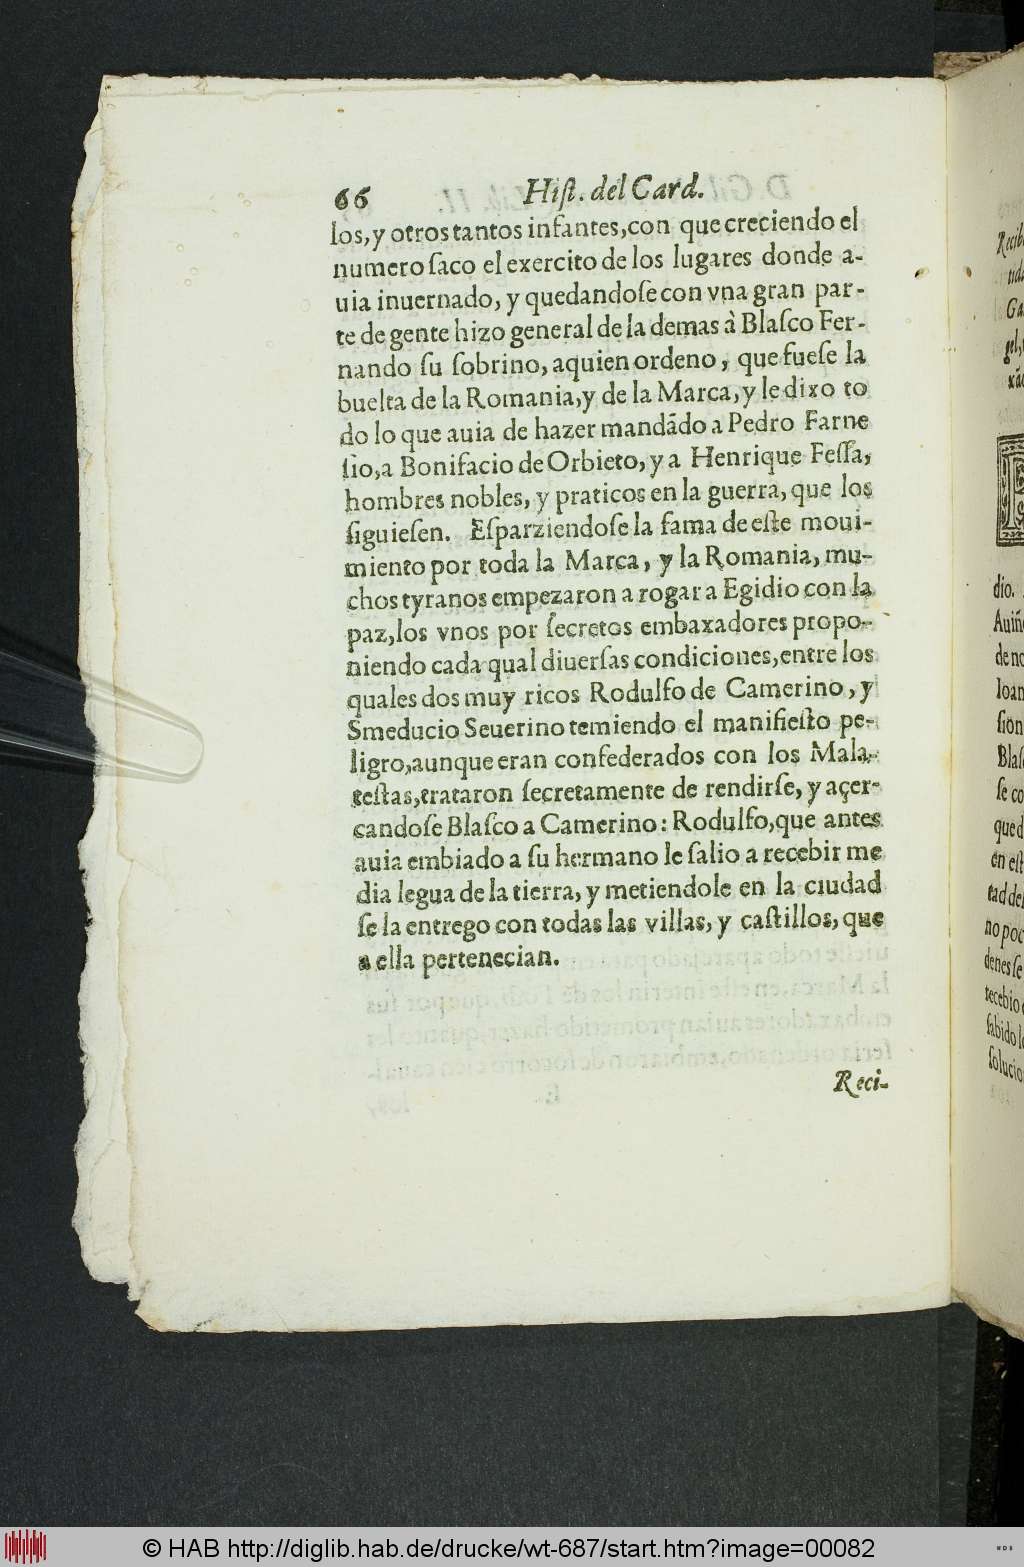 66 Hiſt. del Card.
los, y otros tantos infantes, con que creciendo el
numero ſaco el exercito de los lugares donde a-
uia inuernado, y quedandoſe con vna gran par-
te de gente hizo general de la demas à Blaſco Fer-
nando ſu ſobrino, aquien ordeno, que fueſe la
buelta de la Romania, y de la Marca, y le dixo to
do lo que auia de hazer mandãdo a Pedro Farne
ſio, a Bonifacio de Orbieto, y a Henrique Feſſa,
hombres nobles, y praticos en la guerra, que los
ſiguieſen. Eſparziendoſe la fama de eſte moui-
miento por toda la Marca, y la Romania, mu-
chos tyranos empezaron a rogar a Egidio con la
paz, los vnos por ſecretos embaxadores propo-
niendo cada qual diuerſas condiciones, entre los
quales dos muy ricos Rodulfo de Camerino, y
Smeducio Seuerino temiendo el manifieſto pe-
ligro, aunque eran confederados con los Mala-
teſtas, trataron ſecretamente de rendirſe, y açer-
candoſe Blaſco a Camerino: Rodulfo, que antes
auia embiado a ſu hermano le ſalio a recebir me
dia legua de la tierra, y metiendole en la ciudad
ſe la entrego con todas las villas, y caſtillos, que
a ella pertenecian.
Reci-
dio.
Auiñ
de no
Ioan
ſion
Blaſ
ſe co
que d
en eſt
tad del
no poc
denes ſe
recebio
ſabido l
ſolucio
© HAB http://diglib.hab.de/drucke/wt-687/start.htm?image=00082